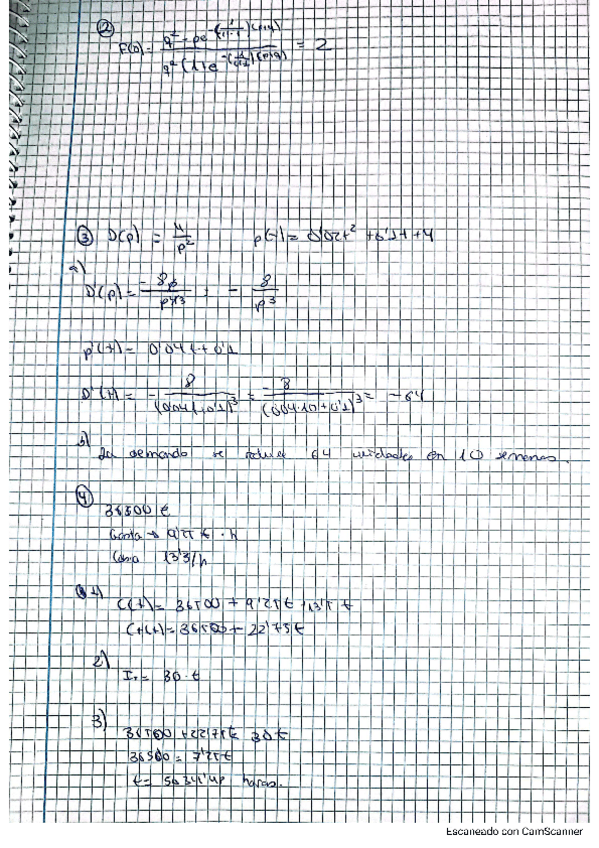 ②
③ D(p) = 4/p² p(t) = 0,02t² + 0,1t + 4
a)
D'(p) = = - 8/p³
p'(t) = 0,04t + 0,1
D'(t) = - 8/(0,04t+0,1)³ = -8/(0,04·10+0,1)³ = -64
b)
La demanda se reduce 64 unidades en 10 semanas.
④
36500 €
Gasta → 9'25 € · h
13'5/h
1)
C(t) = 36500 + 9'25t + 13'5t
C(t) = 36500 + 22'75t
2)
I = 30·t
3)
36500 + 22'75t 30t
36500 = 7'25t
t = 5034'48 horas.
Escaneado con CamScanner